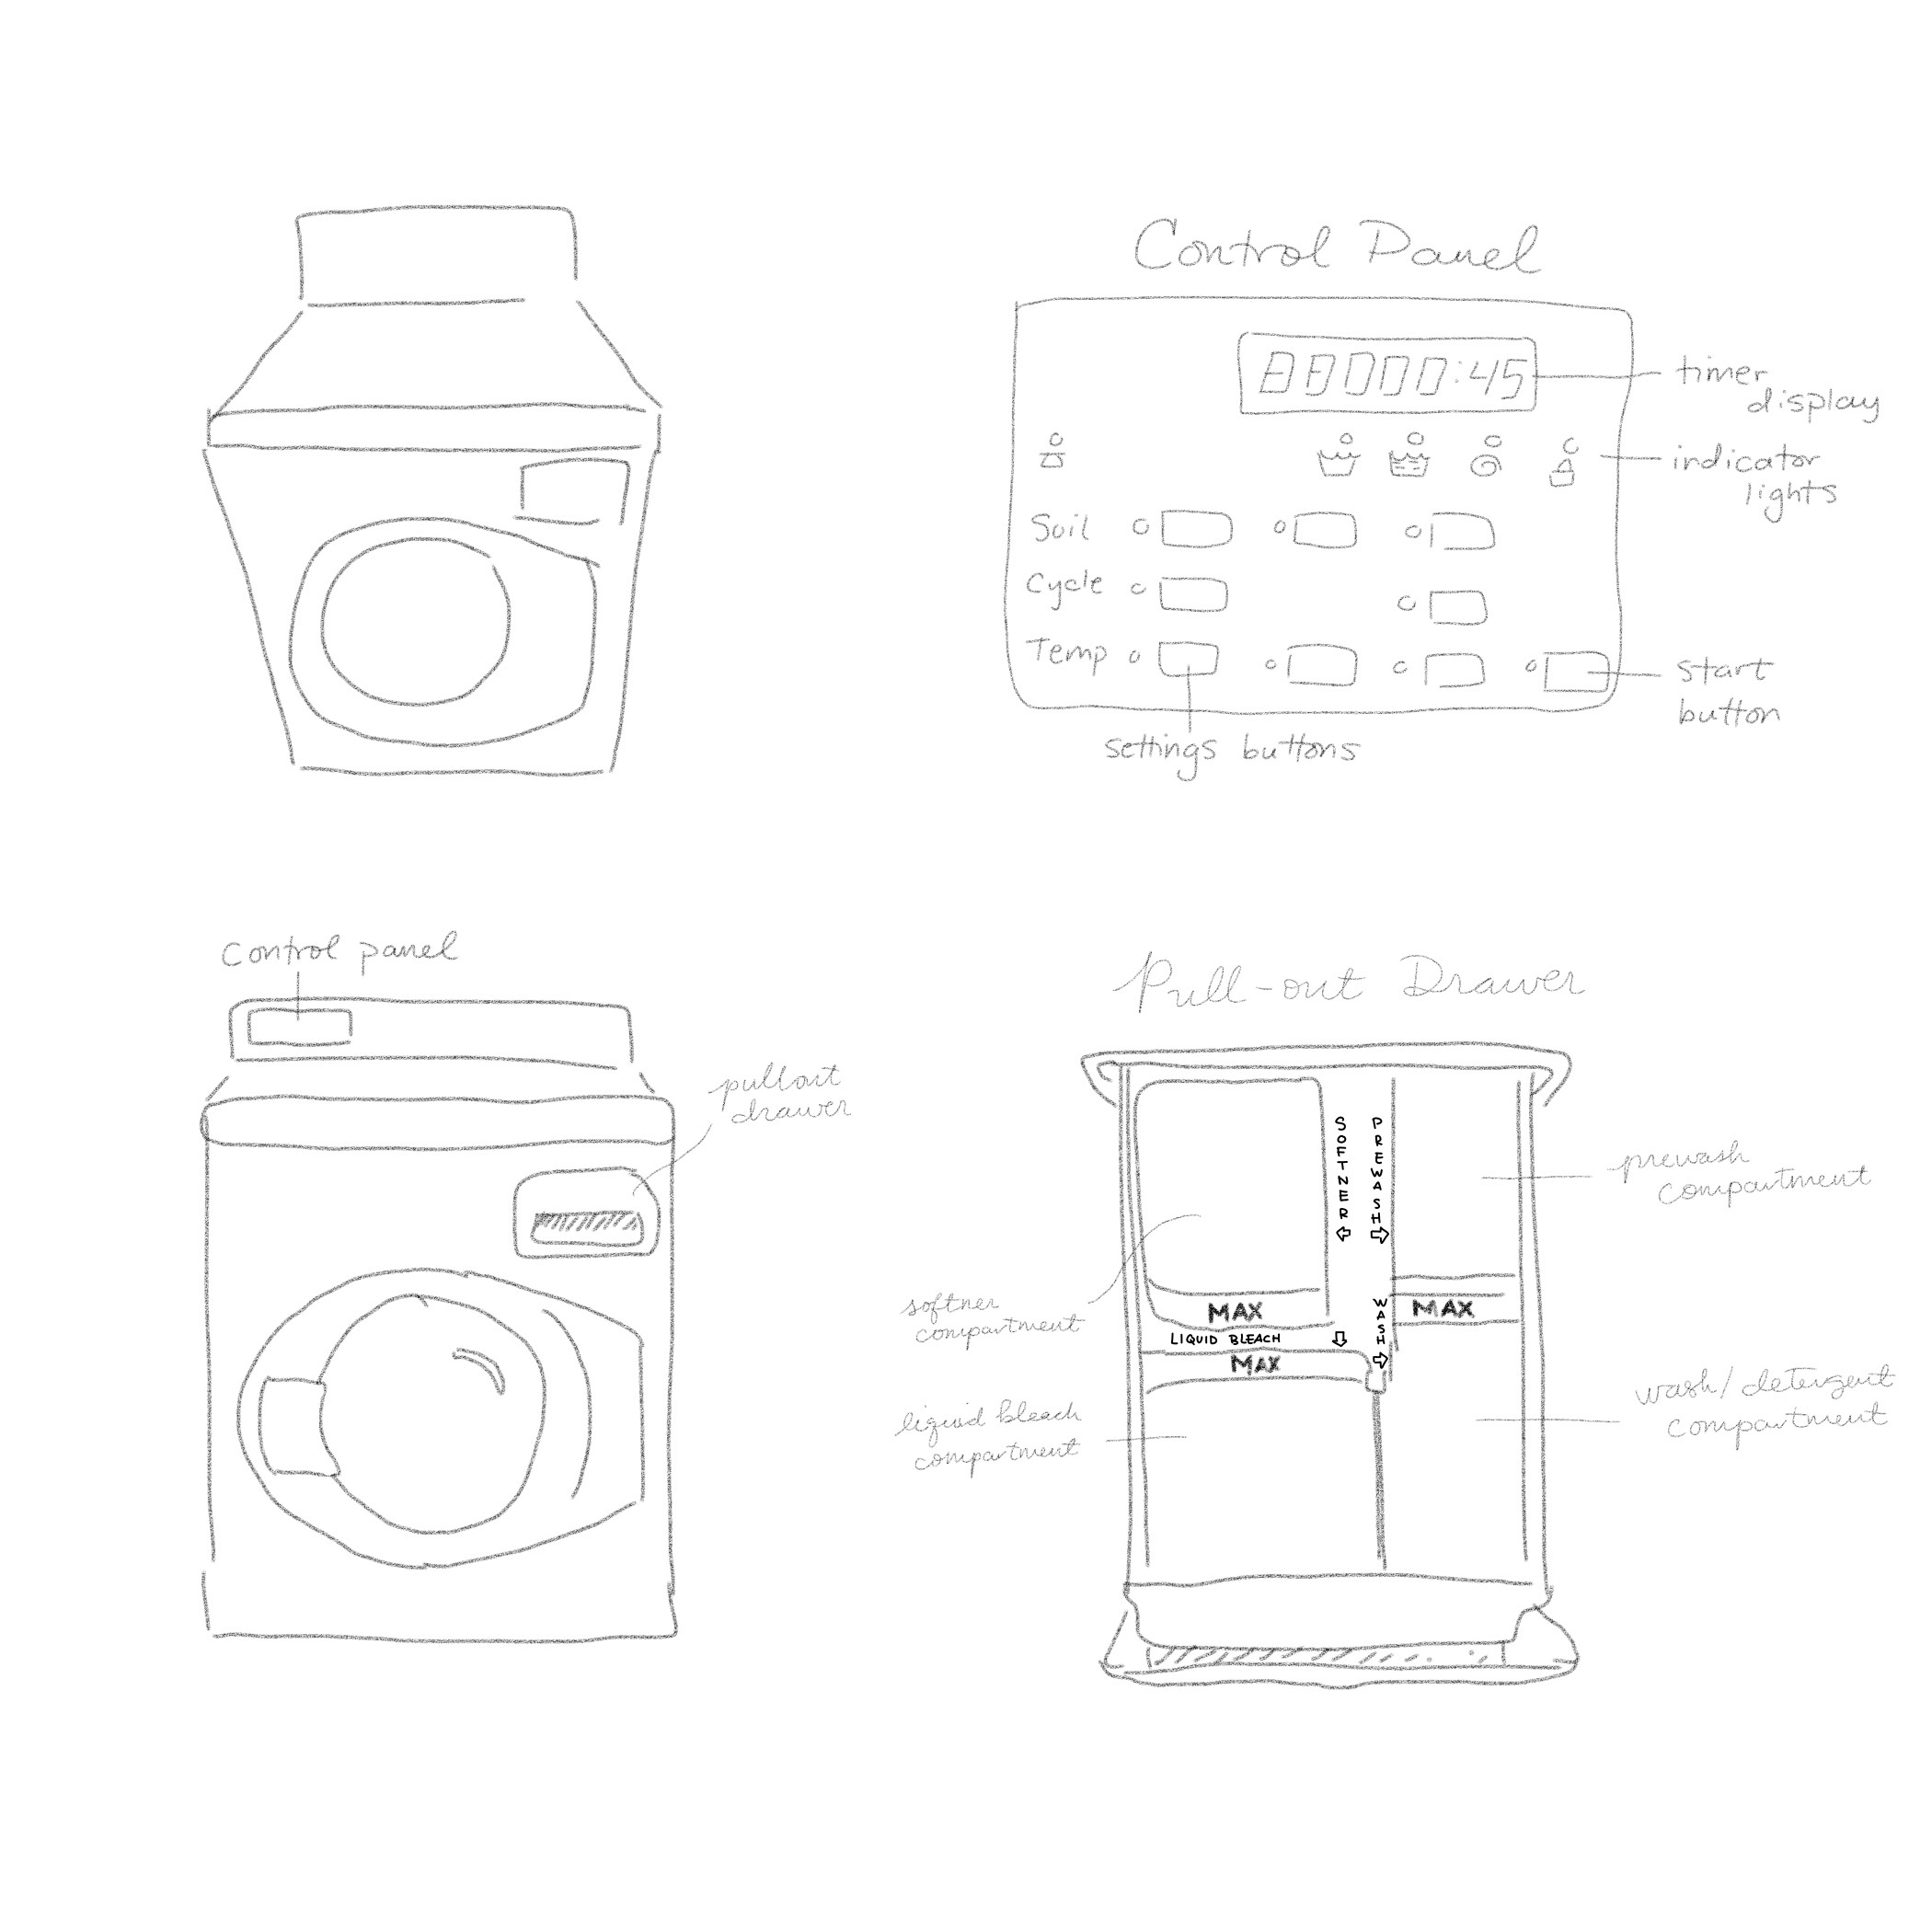 Control Panel
88000:45
timer
display
indicator
lights
Soil
Cycle
Temp
start
button
settings buttons
Control panel
pullout
drawer
Pull-out Drawer
SOFTNER
PREWASH
prewash
compartment
softner
compartment
MAX
WASH
MAX
LIQUID BLEACH
MAX
liquid bleach
compartment
wash/detergent
compartment